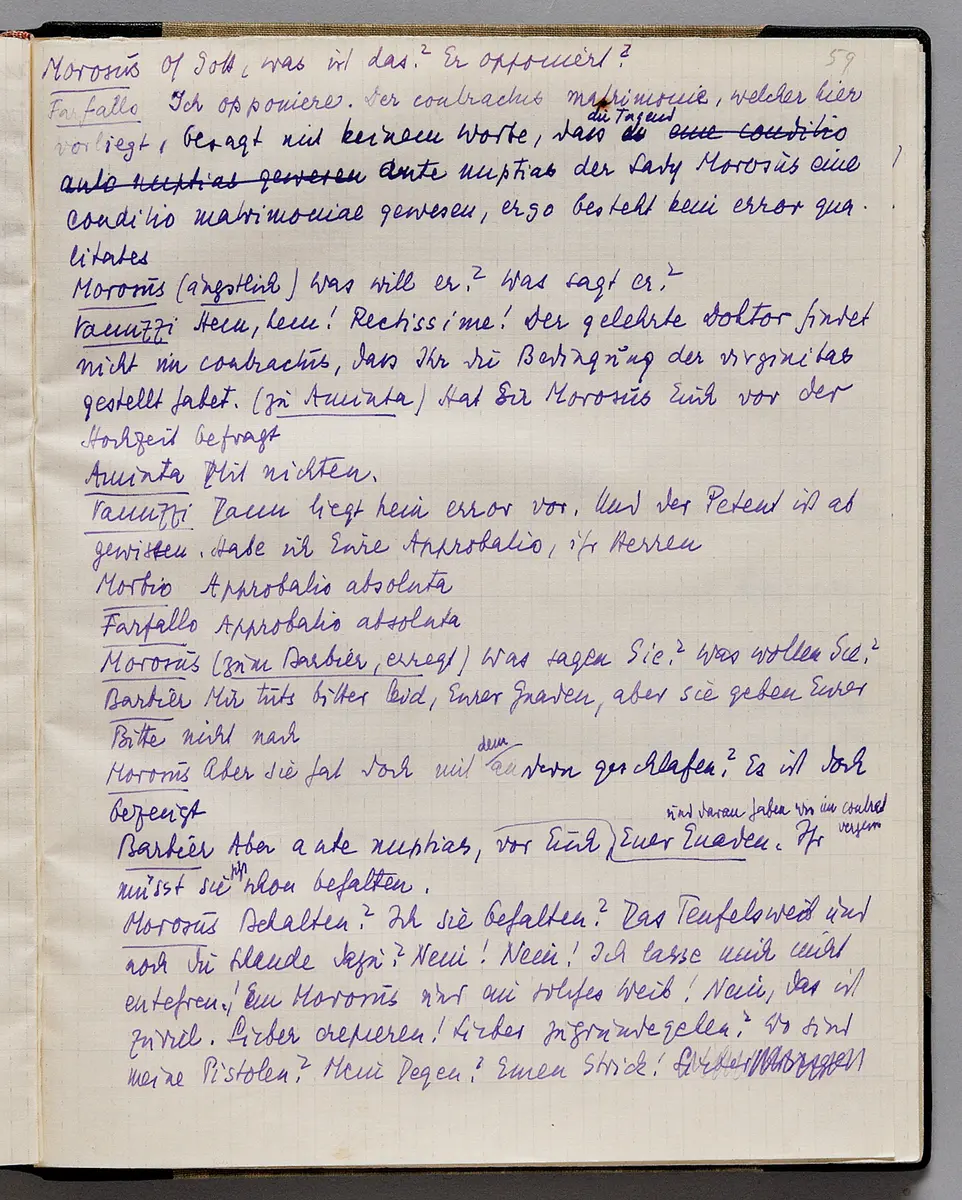 59
Morosus O Gott, was ist das? Er opponiert?
Farfallo Ich opponiere. Der contractus matrimonii, welcher hier
vorliegt, besagt mit keinem Worte, dass die Tugend eine conditio
ante nuptias gewesen ante nuptias der Lady Morosus eine
conditio matrimoniae gewesen, ergo besteht kein error qua-
litates
Morosus (ängstlich) Was will er? Was sagt er?
Vanuzzi Hem, hem! Rectissime! Der gelehrte Doktor findet
nicht im contractus, dass Ihr die Bedingung der virginitas
gestellt habet. (zu Aminta) Hat Sir Morosus Euch vor der
Hochzeit befragt
Aminta Mit nichten.
Vanuzzi Dann liegt kein error vor. Und der Petent ist ab
gewiesen. Habe ich Eure Approbatio, ihr Herren
Morbio Approbatio absoluta
Farfallo Approbatio absoluta
Morosus (zum Barbier, erregt) Was sagen Sie? Was wollen Sie?
Barbier Mir tuts bitter leid, Eurer Gnaden, aber sie geben Eurer
Bitte nicht nach
Morosus Aber sie hat doch mit dem andern geschlafen? Es ist doch
bezeugt
und daran haben wir im contract
Barbier Aber ante nuptias, vor Euch, Euer Gnaden. Ihr
müsst sie schon behalten.
Morosus Behalten? Ich sie behalten? Das Teufelsweib und
noch die Schande dazu? Nein! Nein! Ich lasse mich nicht
entehren! Ein Morosus und ein solches Weib! Nein, das ist
zuviel. Lieber crepieren! Lieber zugrundegehen? Wo sind
meine Pistolen? Mein Degen? Einen Strick!